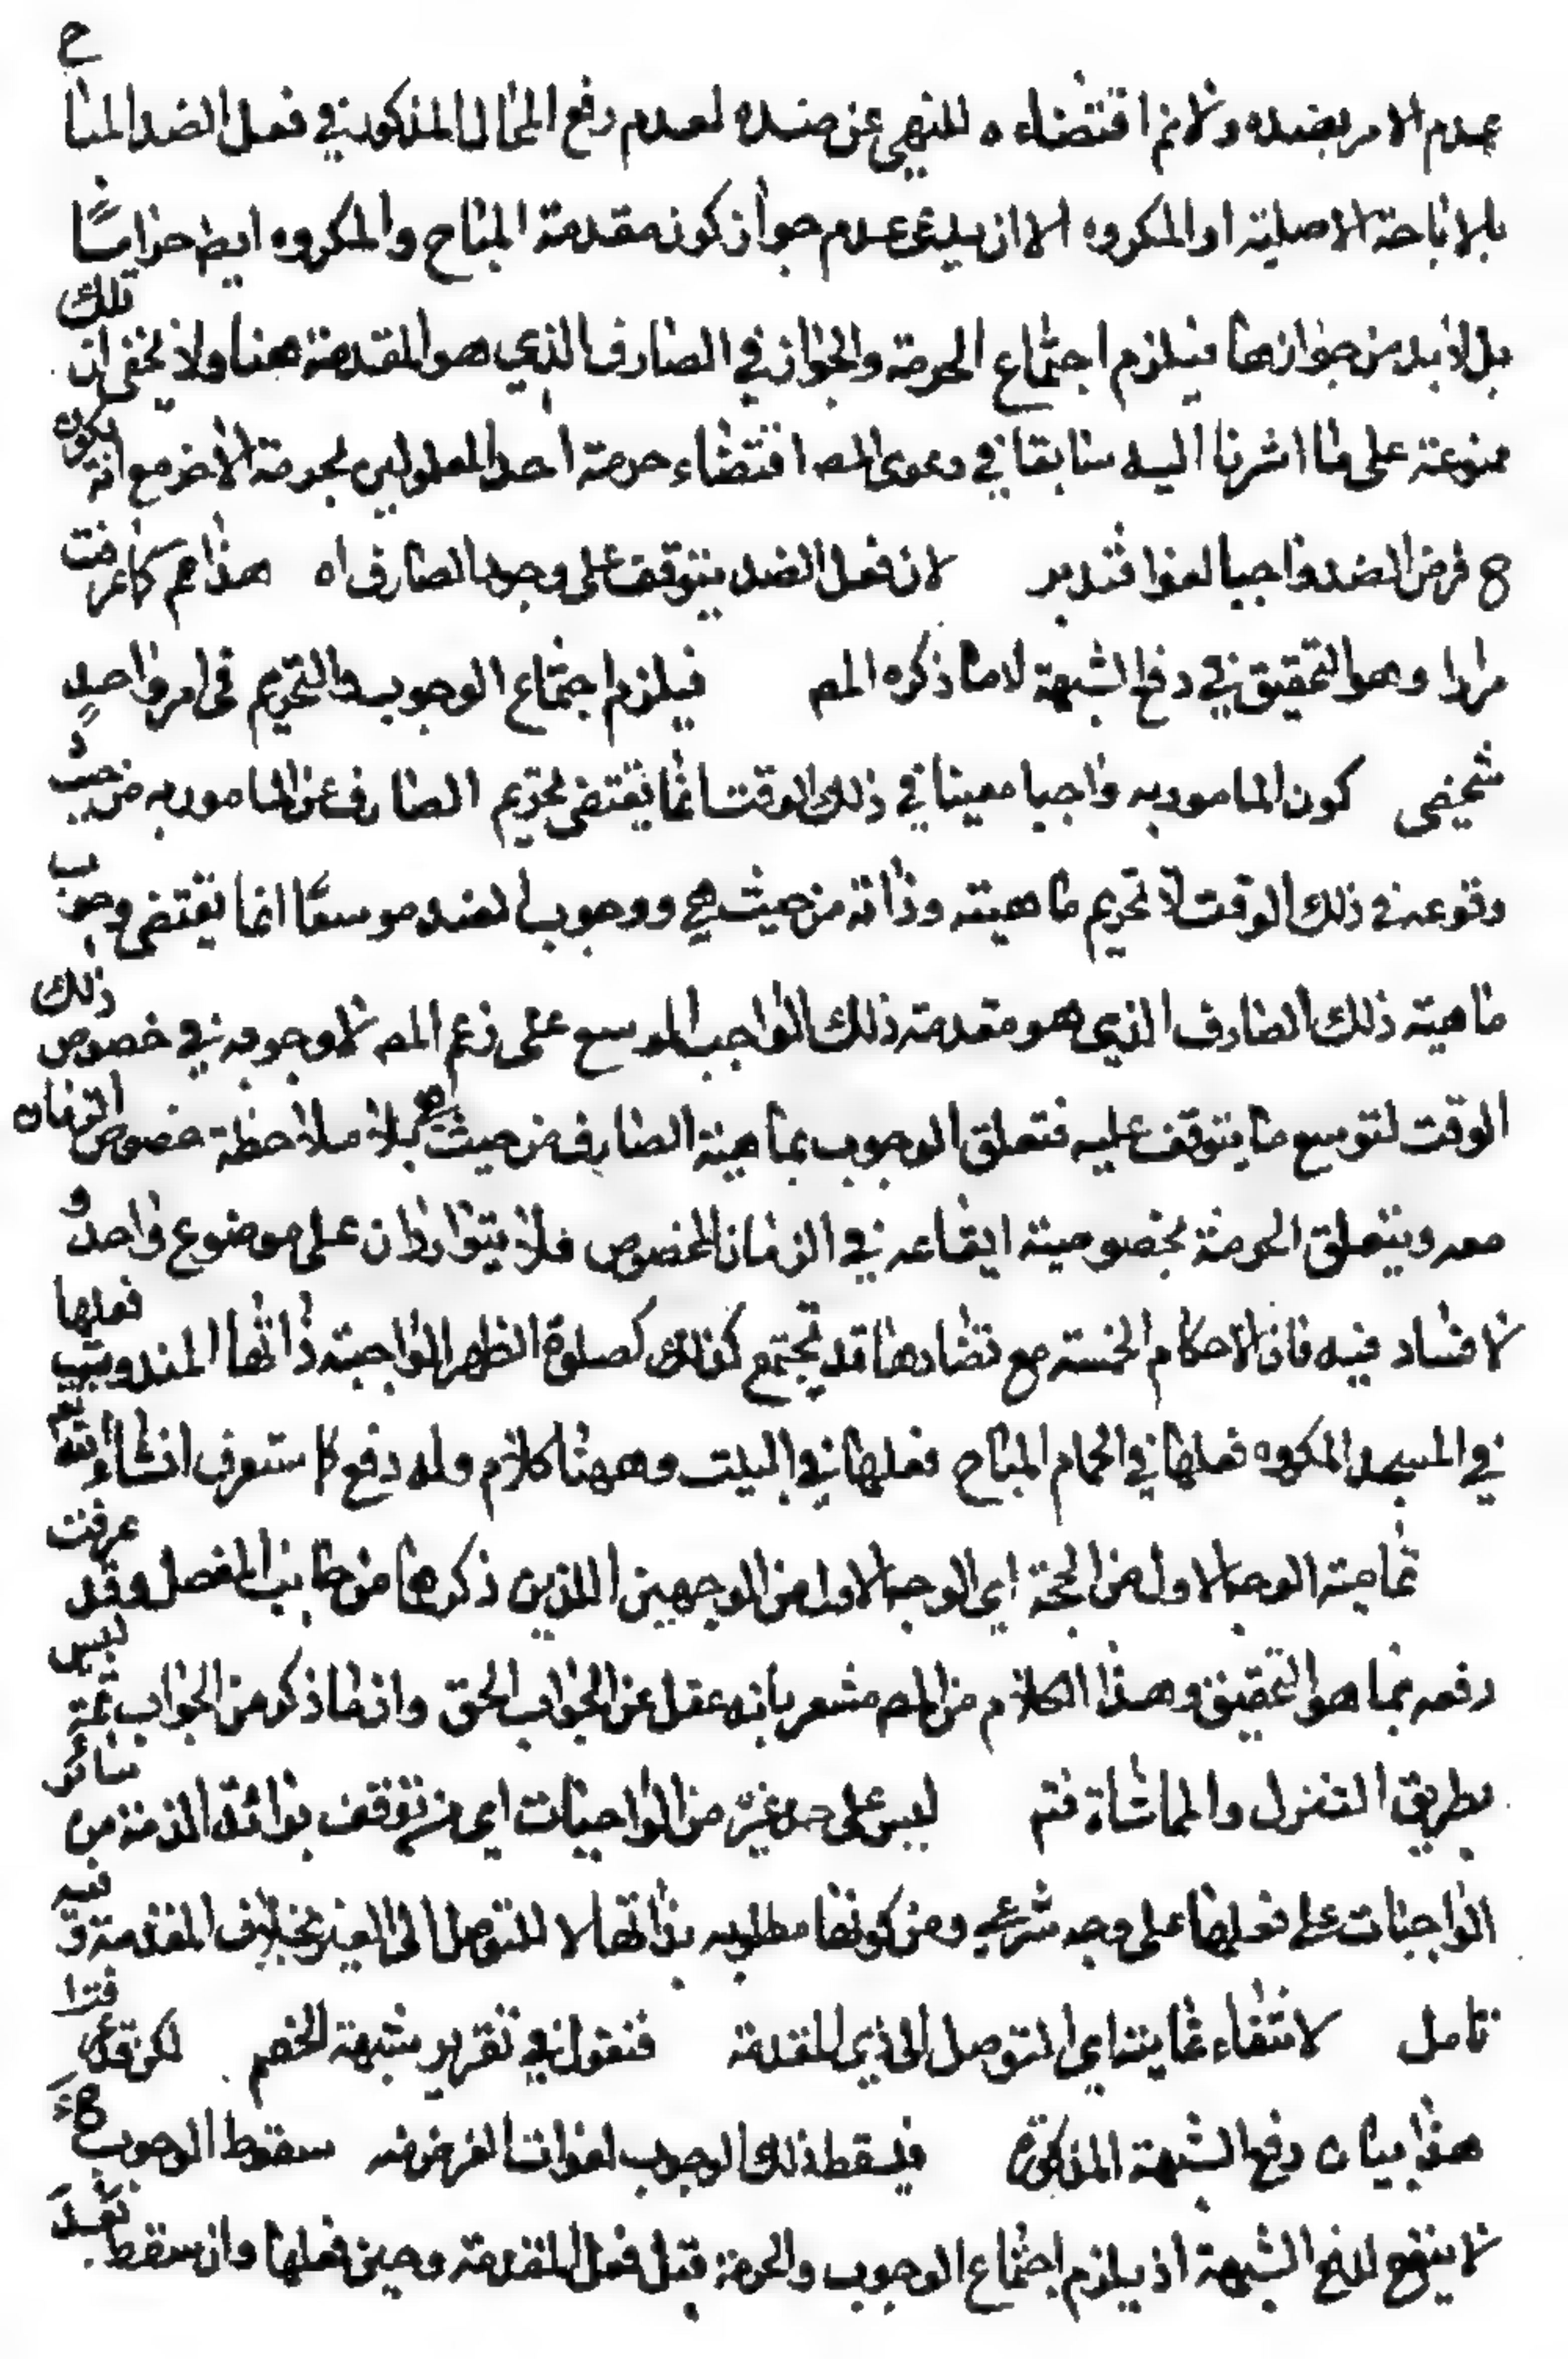 بعدم الامر بضده ولازم اقتضاءه للنهي عن ضده لعدم رفع المحال المذكور في فعل الضد المباح
بالاباحة الاصلية او المكروه الا ان يدعى عدم جواز كون مقدمة المباح والمكروه ايض حراما
بل لابد من جوازها فيلزم اجتماع الحرمة والجواز في الصارف الذي هو المقدمة هنا ولا يخفى ان تلك
ممنوعة على ما اشرنا اليه سابقا في دعوى المص اقتضاء حرمة احد المعلولين لحرمة الاخر مع انه يكون
ح فرض الضد واجبا لغوا فتدبر لان فعل الضد يتوقف على وجود الصارف اه هذا مم كما عرفت
مرارا وهو التحقيق في دفع الشبهة لا ما ذكره المص فيلزم اجتماع الوجوب والتحريم في امر واحد
شخصي كون المامور به واجبا معينا في ذلك الوقت انما يقتضي تحريم الصارف عن المامور به من حيث
وقوعه في ذلك الوقت لا تحريم ماهيته وذاته من حيث هي ووجوب الضد موسعا انما يقتضي وجوب
ماهية ذلك الصارف الذي هو مقدمة ذلك الواجب الموسع على زعم المص لا وجوبه في خصوص ذلك
الوقت لتوسع ما يتوقف عليه فتعلق الوجوب بماهية الصارف من حيث هي بلا ملاحظة خصوص الزمان
معه ويتعلق الحرمة بخصوصية ايقاعه في الزمان المخصوص فلا يتواردان على موضوع واحد و
لا فساد فيه فان الاحكام الخمسة مع تضادها قد تجتمع كذلك كصلوة الظهر الواجبة ذاتها المندوب فعلها
في المسجد المكروه فعلها في الحمام المباح فعلها في البيت وههنا كلام وله دفع كما ستعرف انشاء الله تعم
تمامية الوجه الاول من الحجة اي الوجه الاول من الوجهين اللذين ذكرهما من جانب المفصل وقد عرفت
دفعه بما هو التحقيق وهذا الكلام من المص مشعر بانه غفل عن الجواب الحق وان ما ذكر من الجواب ليس ثمة
بطريق التنزل والمماشاة فتم ليس على حد غيره من الواجبات اي من توقف برائة الذمة من سائر
الواجبات على فعلها على وجه شرعي ومن كونها مطلوبه بذاتها لا للتوصل الى الغير بخلاف المقدمة وفيه
تامل لانتفاء غايته اي التوصل الى ذي المقدمة فنقول في تقرير شبهة الخصم لكن قد
هذا بيان دفع الشبهة المذكورة فيسقط ذلك الوجوب لفوات الغرض منه سقوط الوجوب ح
لا ينفع لدفع الشبهة اذ يلزم اجتماع الوجوب والحرمة قبل فعل المقدمة وحين فعلها وان سقط بعد